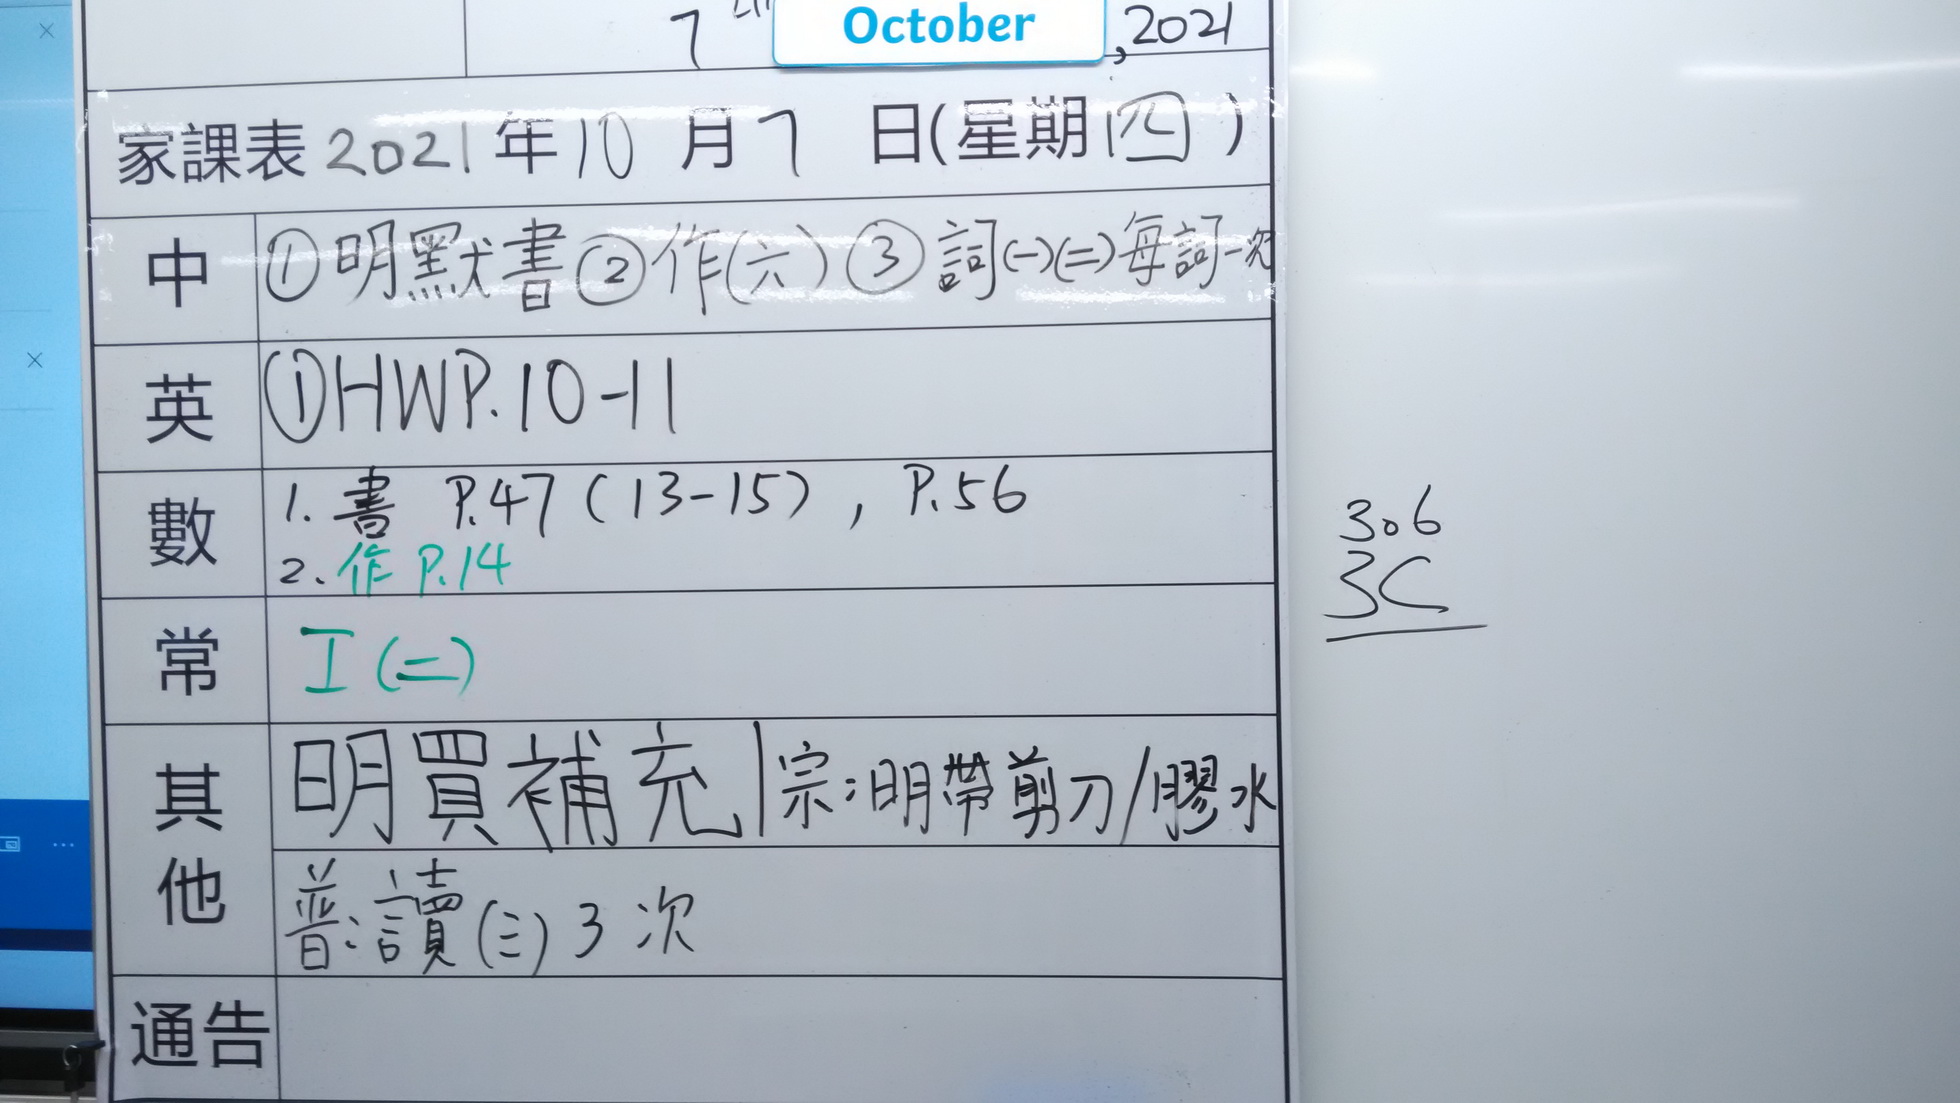 7th October, 2021
家課表 2021年10月7日(星期四)
中 ①明默書②作(六)③詞(一)(二)每詞一次
英 ①HWP.10-11
數 1. 書 P.47(13-15), P.56
2. 作 P.14
常 工(二)
其他 明買補充|宗:明帶剪刀/膠水
普:讀(三)3次
通告
306
3C